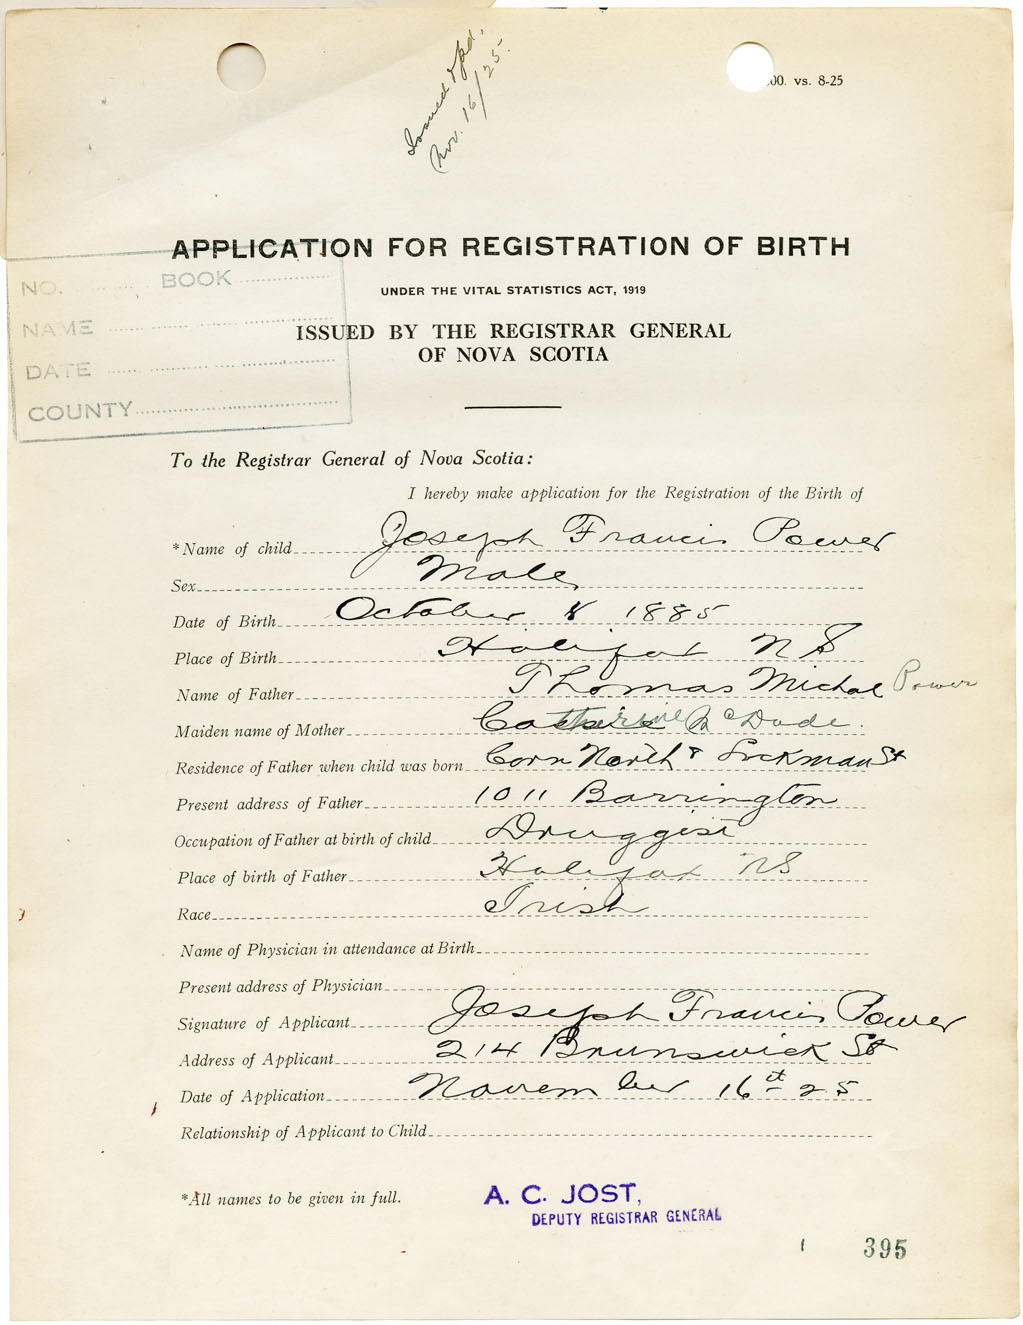 Issued & pd.
Nov. 16/25.
00. vs. 8-25
APPLICATION FOR REGISTRATION OF BIRTH
UNDER THE VITAL STATISTICS ACT, 1919
ISSUED BY THE REGISTRAR GENERAL
OF NOVA SCOTIA
NO. BOOK
NAME
DATE
COUNTY
To the Registrar General of Nova Scotia:
I hereby make application for the Registration of the Birth of
*Name of child Joseph Francis Power
Sex Male
Date of Birth October 8 1885
Place of Birth Halifax NS
Name of Father Thomas Michal Power
Maiden name of Mother Catherine McDade.
Residence of Father when child was born Corn North & Lockman St
Present address of Father 1011 Barrington
Occupation of Father at birth of child Druggist
Place of birth of Father Halifax NS
Race Irish
Name of Physician in attendance at Birth
Present address of Physician
Signature of Applicant Joseph Francis Power
Address of Applicant 214 Brunswick St
Date of Application November 16th 25
Relationship of Applicant to Child
*All names to be given in full.
A. C. JOST,
DEPUTY REGISTRAR GENERAL
395